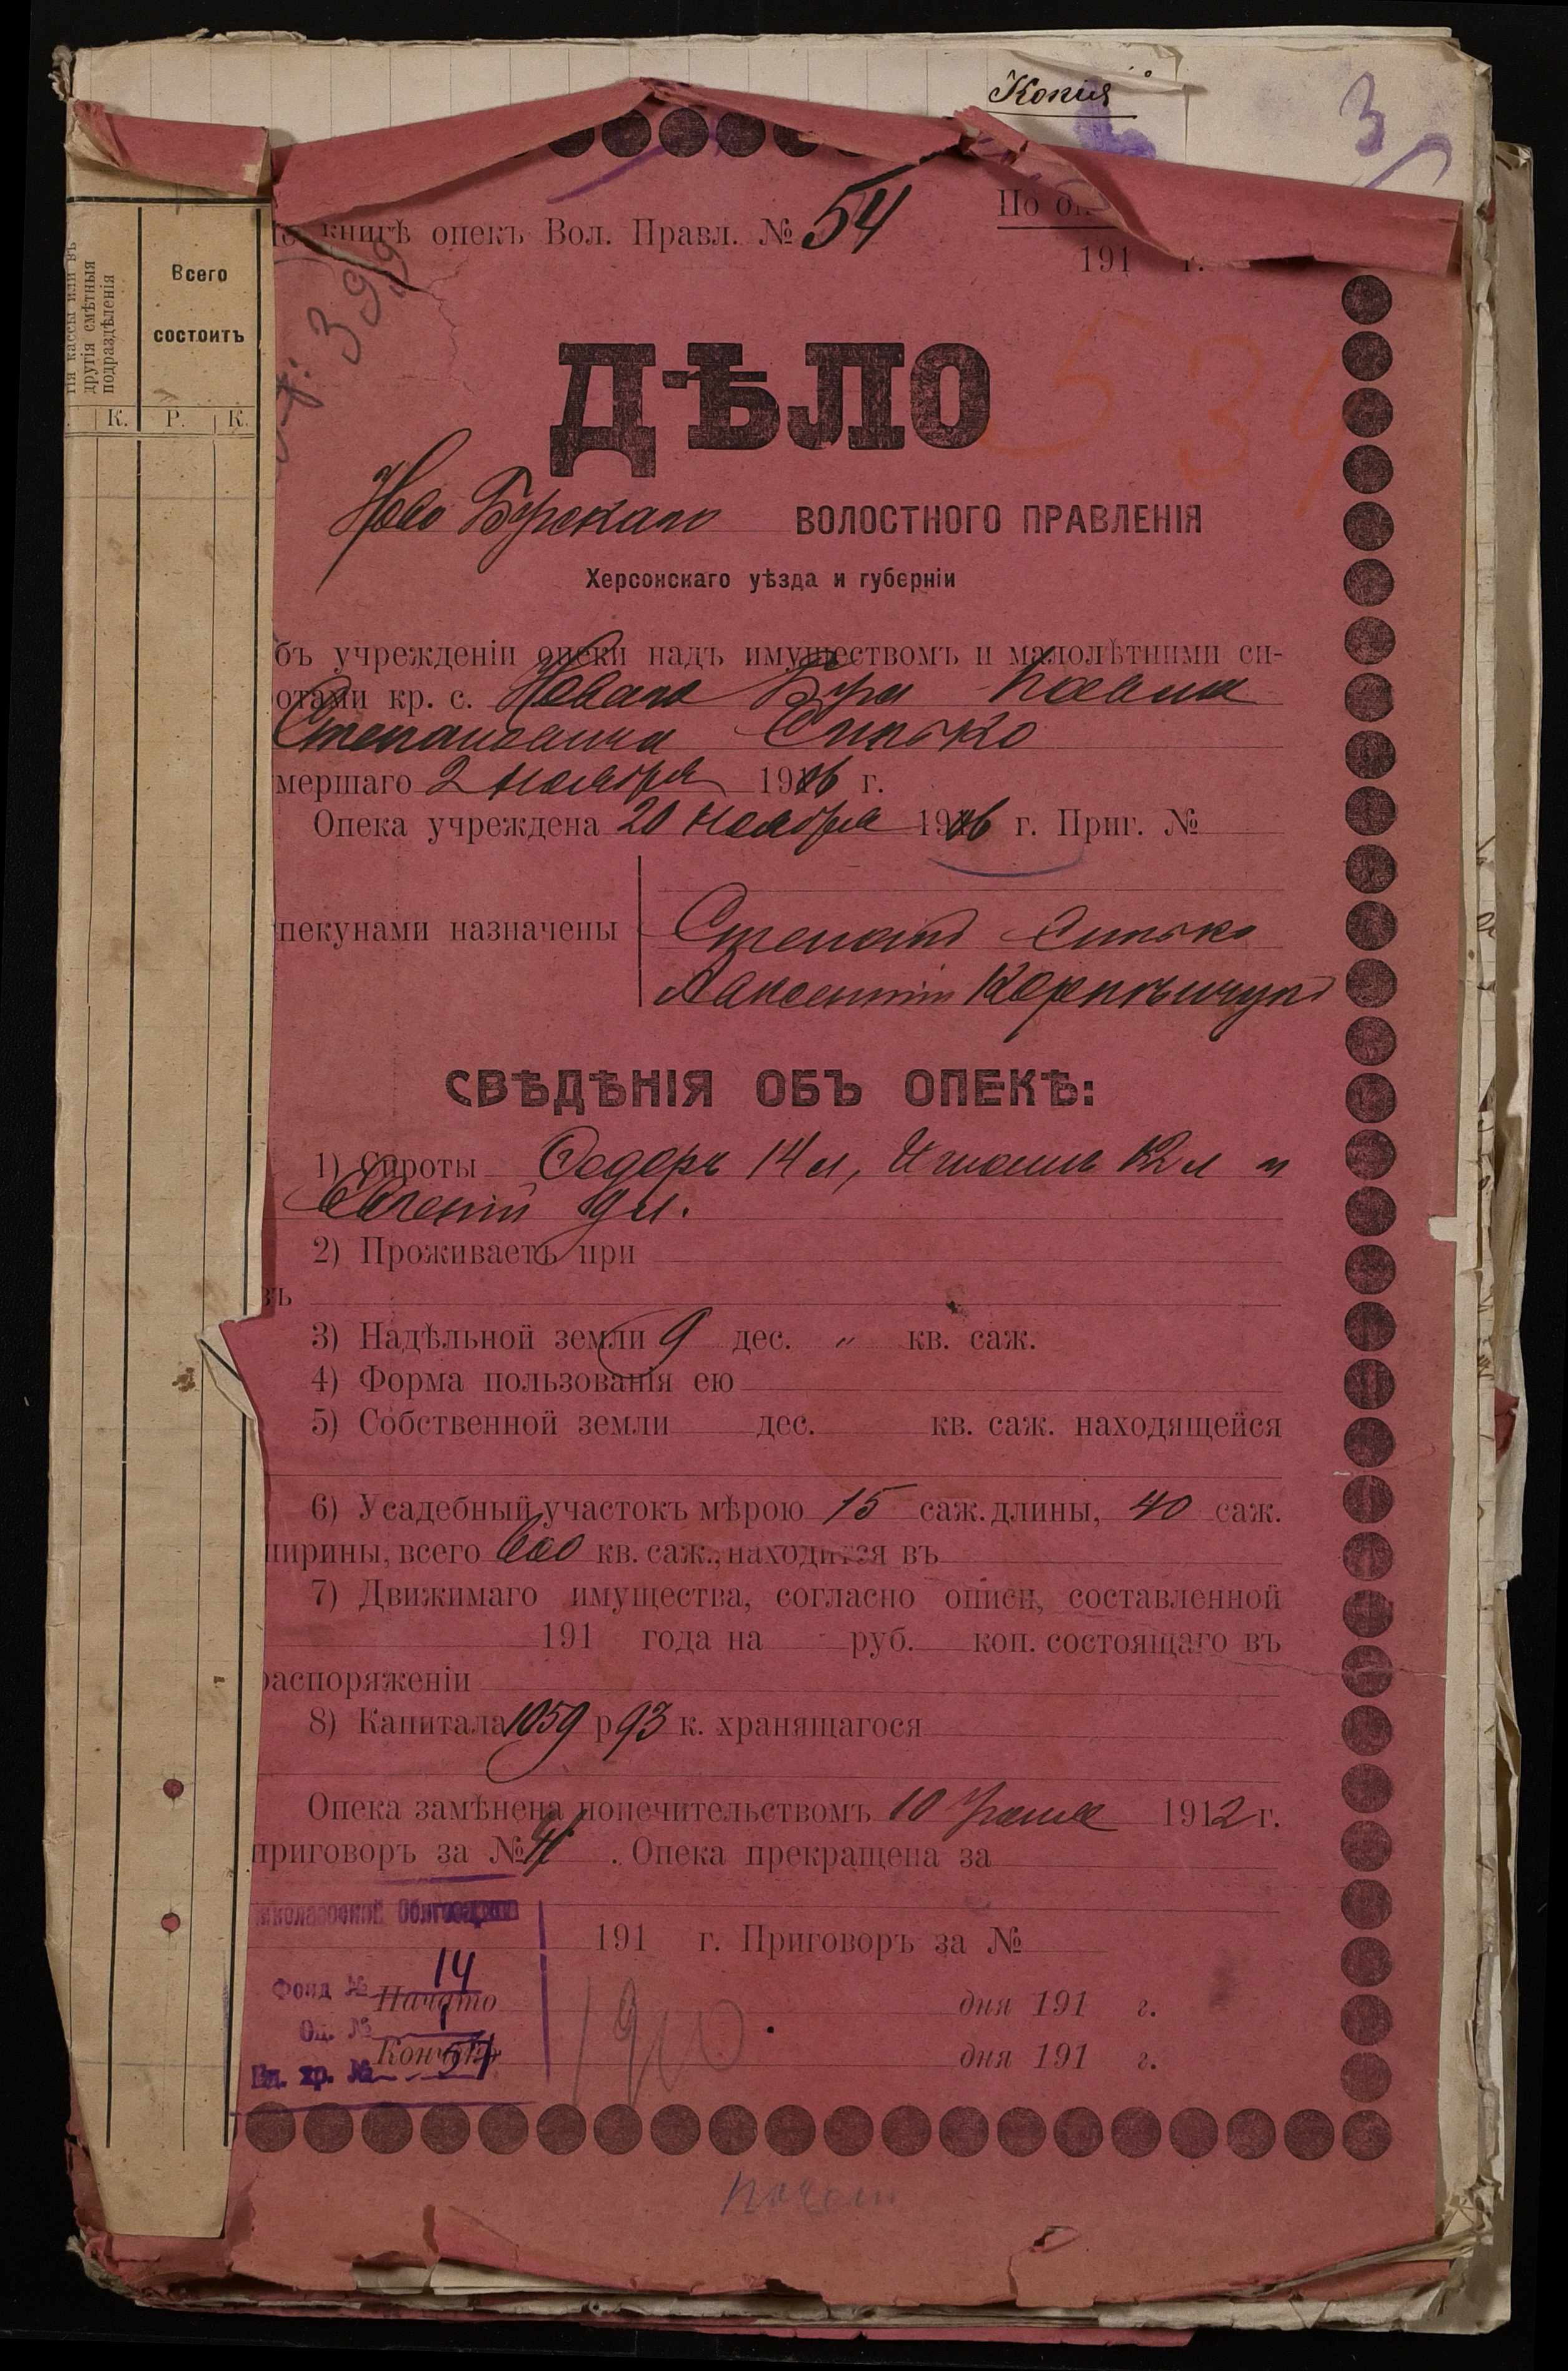 Копія
3
книгѣ опекъ Вол. Правл. № 54
По оп.
191 г.
399
гія кассы или въ
другія смѣтныя
подраздѣленія
Всего
состоитъ
К. Р. К.
ДѢЛО
534
Ново Бугскаго ВОЛОСТНОГО ПРАВЛЕНІЯ
Херсонскаго уѣзда и губерніи
бъ учрежденіи опеки надъ имуществомъ и малолѣтними си-
отами кр. с. Новаго Буга Павла
Степановича Сипько
мершаго 2 ноября 1906 г.
Опека учреждена 20 ноября 1906 г. Приг. №
пекунами назначены
Степанъ Сипько
Авксентій
СВѢДѢНІЯ ОБЪ ОПЕКѢ:
1) Сироты Ѳедоръ 14 л, 12 л и
Евгеній 9 л.
2) Проживаетъ при
въ
3) Надѣльной земли 9 дес. „ кв. саж.
4) Форма пользованія ею
5) Собственной земли дес. кв. саж. находящейся
6) Усадебный участокъ мѣрою 15 саж. длины, 40 саж.
ширины, всего 600 кв. саж., находится въ
7) Движимаго имущества, согласно описи, составленной
191 года на руб. коп. состоящаго въ
распоряженіи
8) Капитала 1059 р 93 к. хранящагося
Опека замѣнена попечительствомъ 10 1912 г.
приговоръ за № 4. Опека прекращена за
191 г. Приговоръ за №
Фонд № 14
Оп. № 1
Ед. хр. № 54
Начато дня 191 г.
Кончено дня 191 г.
1910